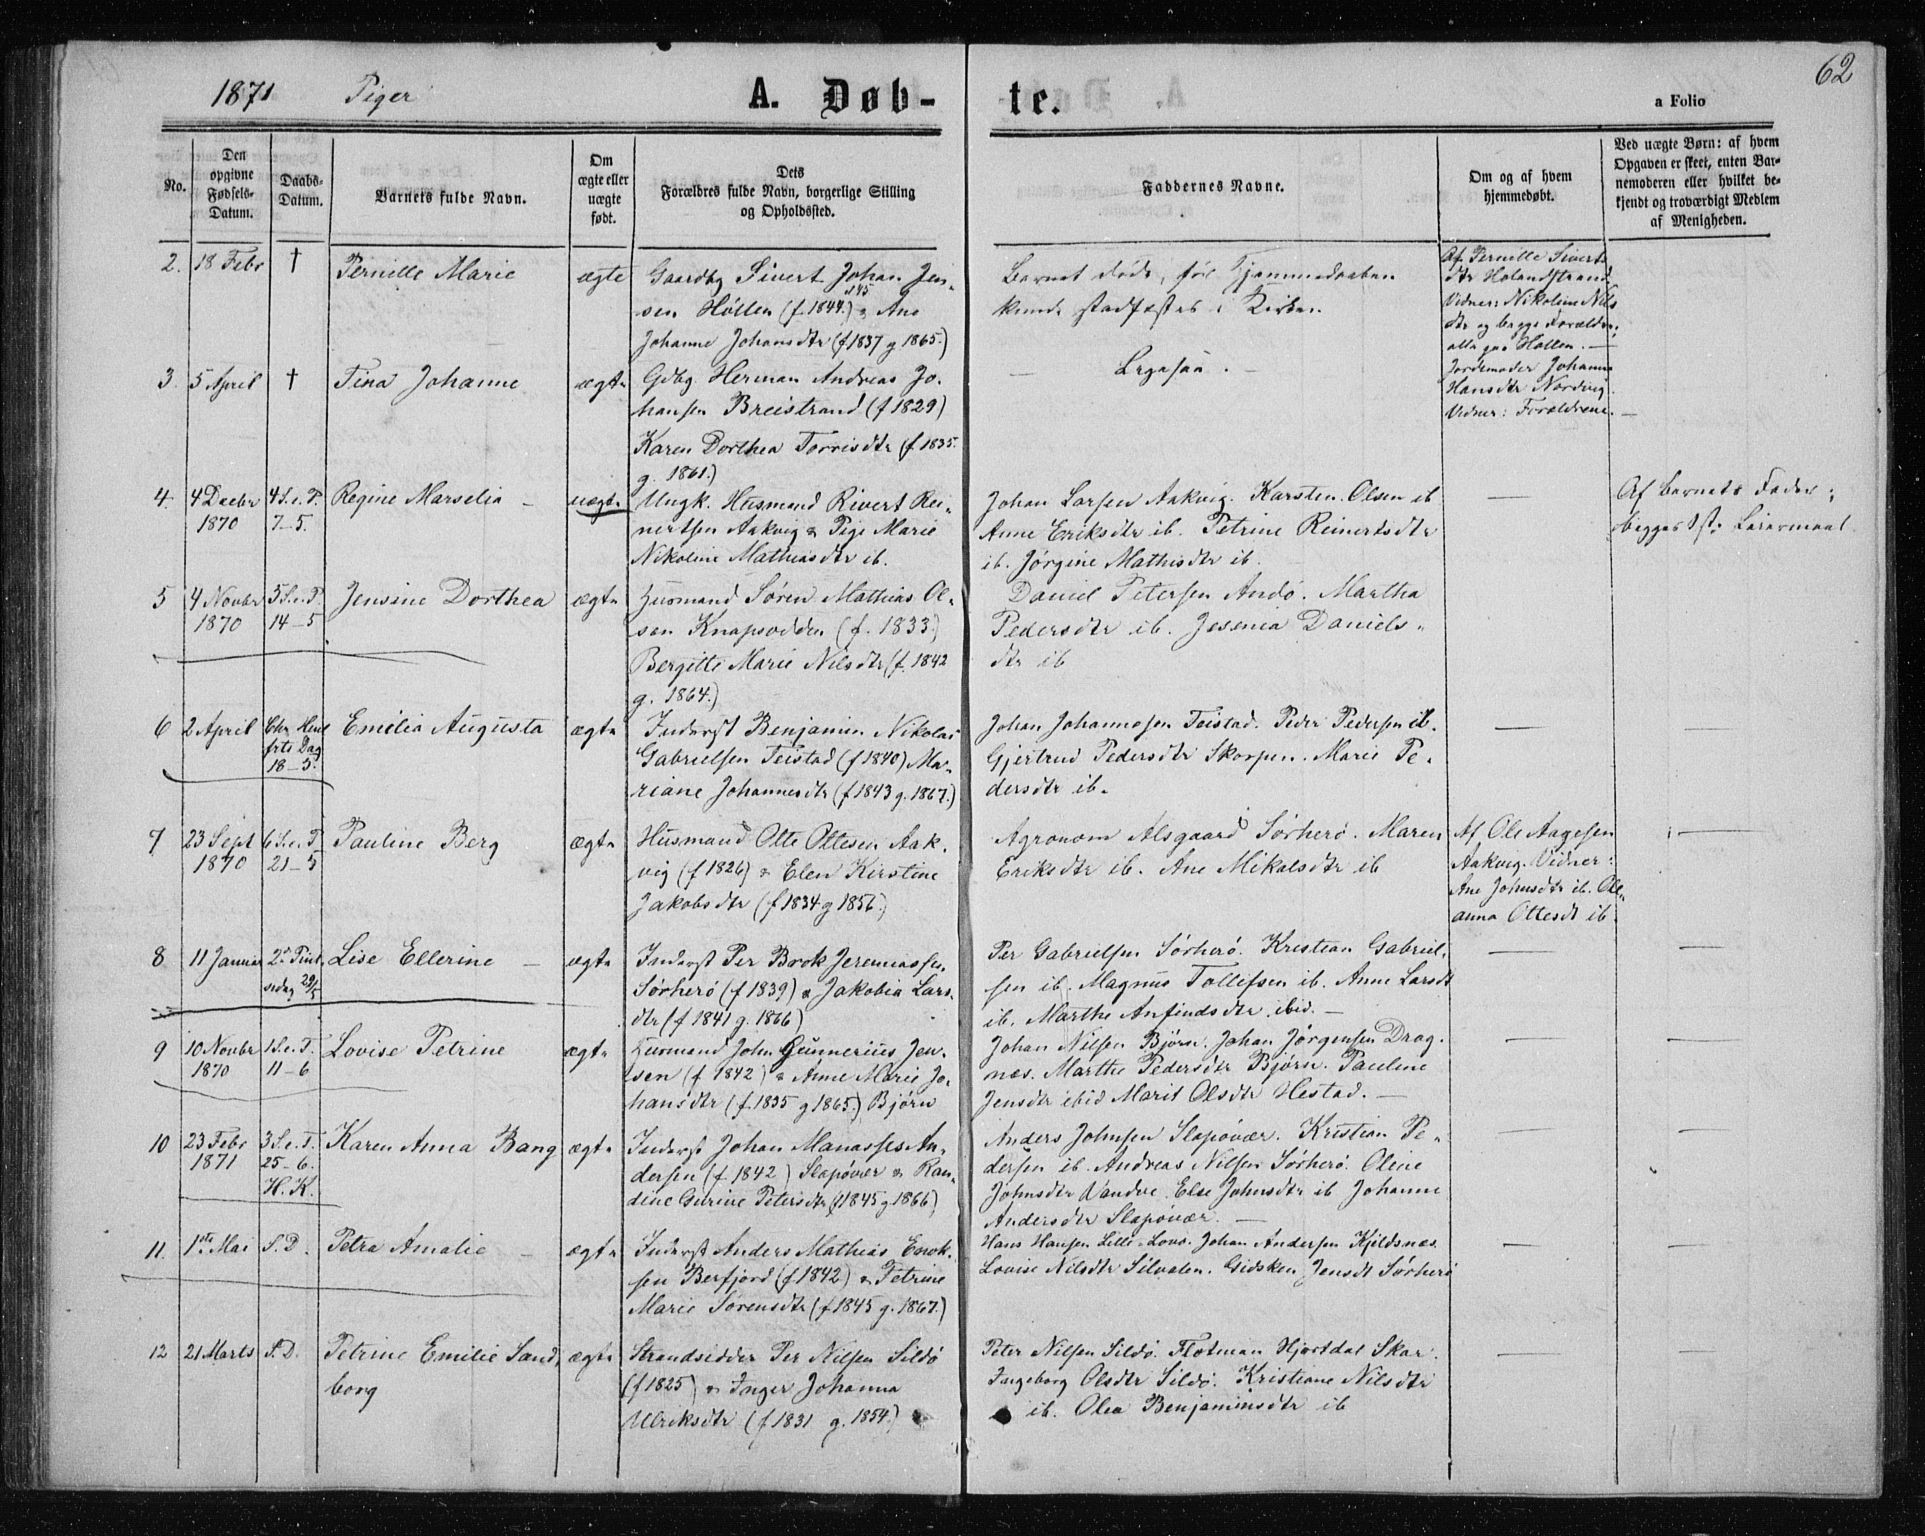 62
1871 Piger
A. Døb-
te.
a Folio
No.
Den
opgivne
Fødsels-
Datum.
Daabs-
Datum.
Barnets fulde Navn.
Om
ægte eller
uægte
født.
Dets
Forældres fulde Navn, borgerlige Stilling
og Opholdssted.
Faddernes Navne.
Om og af hvem
hjemmedøbt.
Ved uægte Børn: af hvem
Opgaven er skeet, enten Bar-
nemoderen eller hvilket be-
kjendt og troværdigt Medlem
af Menigheden.
2. 18 Febr † Pernille Marie ægte
Gaardbg Sivert Johan Jen-
sen Hollen (f 1844.) & Ane
Johanne Johansdtr (f 1837 g 1865.)
Barnet døde, før Hjemmedaaben
kunde stadfæstes i Kirken
Af Pernille Siverts
dtr Holandstrand
Vidner: Nikoline Nils
dtr og begge Forældre,
alle paa Hollen. —
3. 5 April † Tina Johanne ægte
Gdbg. Herman Andreas Jo-
hansen Breistrand (f 1829)
Karen Dorthea Torrisdtr (f 1835.
g. 1861.)
— Ligesaa. —
Jordemoder Johanna
Hansdtr Nordvig.
Vidner: Forældrene. —
4. 4 Decbr 1870 4 S. e. P. 7–5. Regine Marselia — uægte
Ungk. Husmand Rivert Rei-
nertsen Aakvig & Pige Marie
Nikoline Mathiasdtr ib.
Johan Larsen Aakvig. Karsten Olsen ib
Anne Eriksdtr ib. Petrine Reinertsdtr
ib. Jørgine Mathisdtr ib.
—
Af Barnets Fader;
begges 1ste Leiermaal
5 4 Novbr 1870 5 S. e. P. 14–5 Jensine Dorthea ægte
Husmand Søren Mathias Ol-
sen Knapsodden (f. 1833.)
Bergitte Marie Nilsdtr (f. 1842
g. 1864.)
Daniel Petersen Andø. Martha
Pedersdtr ib. Jesenia Daniels-
dtr ib
6 2 April Chr. Himl frts Dag 18–5. Emilia Augusta ægte
Inderst Benjamin Nikolai
Gabrielsen Teistad (f 1840) Ma-
riane Johannesdtr (f 1843 g. 1867.)
Johan Johannesen Teistad. Peder Pedersen ib.
Gjertrud Pedersdtr Skorpen. Marie Pe-
dersdtr ib.
—
—
7 23 Sept 1870 6 S. e. P. 21–5 Pauline Berg ægte
Husmand Otte Ottesen Aak-
vig (f 1826) & Elen Kirstine
Jakobsdtr (f 1834 g 1856.)
Agronom Alsgaard Sørherø. Maren
Eriksdtr ib. Ane Mikalsdtr ib
Af Ole Aagesen
Aakvig. Vidner:
Ane Johnsdtr ib. Ole-
anna Ottesdt ib.
—
8 11 Januar 2d Pint sedag 29/5 Lise Ellerine — ægte
Inderst Per Brok Jeremiassen
Sørherø (f 1839) & Jakobia Lars-
dtr (f 1841 g. 1866)
Per Gabrielsen Sørherø. Kristian Gabriel-
sen ib. Magnus Tollefsen ib. Anne Larsdt
ib. Marthe Anfindsdtr ibid. —
—
—
9 10 Novbr 1870 1 S. e. T. 11–6 Lovise Petrine ægte
Husmand John Gunnerius Jen-
sen (f 1842) & Anne Marie Jo-
hansdtr (f 1835 g 1865.) Bjørn
Johan Nilsen Bjørn. Johan Jørgensen Drag-
nes. Marthe Pedersdtr Bjørn. Pauline
Jensdtr ibid Marit Olsdtr Hestad. —
—
—
10 23 Febr 1871 3 S. e. T. 25–6. H. K. Karen Anna Bang ægte
Inderst Johan Manasses An-
dersen (f 1842) Slapøvær & Ran-
dine Gurine Petersdtr (f 1845 g 1866)
Anders Johnsen Slapøvær. Kristian Pe-
dersen ib. Andreas Nilsen Sørherø. Oline
Johnsdtr Vandve. Else Johnsdtr ib Johanne
Andersdtr Slapøvær. —
—
—
11. 1ste Mai S. D. Petra Amalie — ægte
Inderst Anders Mathias Enok-
sen Berfjord (f 1842) & Petrine
Marie Sørensdtr (f 1845 g. 1867.)
Hans Hansen Lille-Lovø. Johan Andersen Kjeldsnes
Lovise Nilsdtr Silvalen. Gidsken Jensdt Sørherø
—
—
12 21 Marts S. D. Petrine Emilie Sand- borg ægte
Strandsidder Per Nilsen Sildø
(f 1825) & Inger Johanna
Ulriksdtr (f 1831 g. 1854.)
Peter Nilsen Sildø. Flotman Hjortdal Skar.
Ingeborg Olsdtr Sildø. Kristiane Nilsdtr
ib. Olea Benjaminsdtr ib
—
—